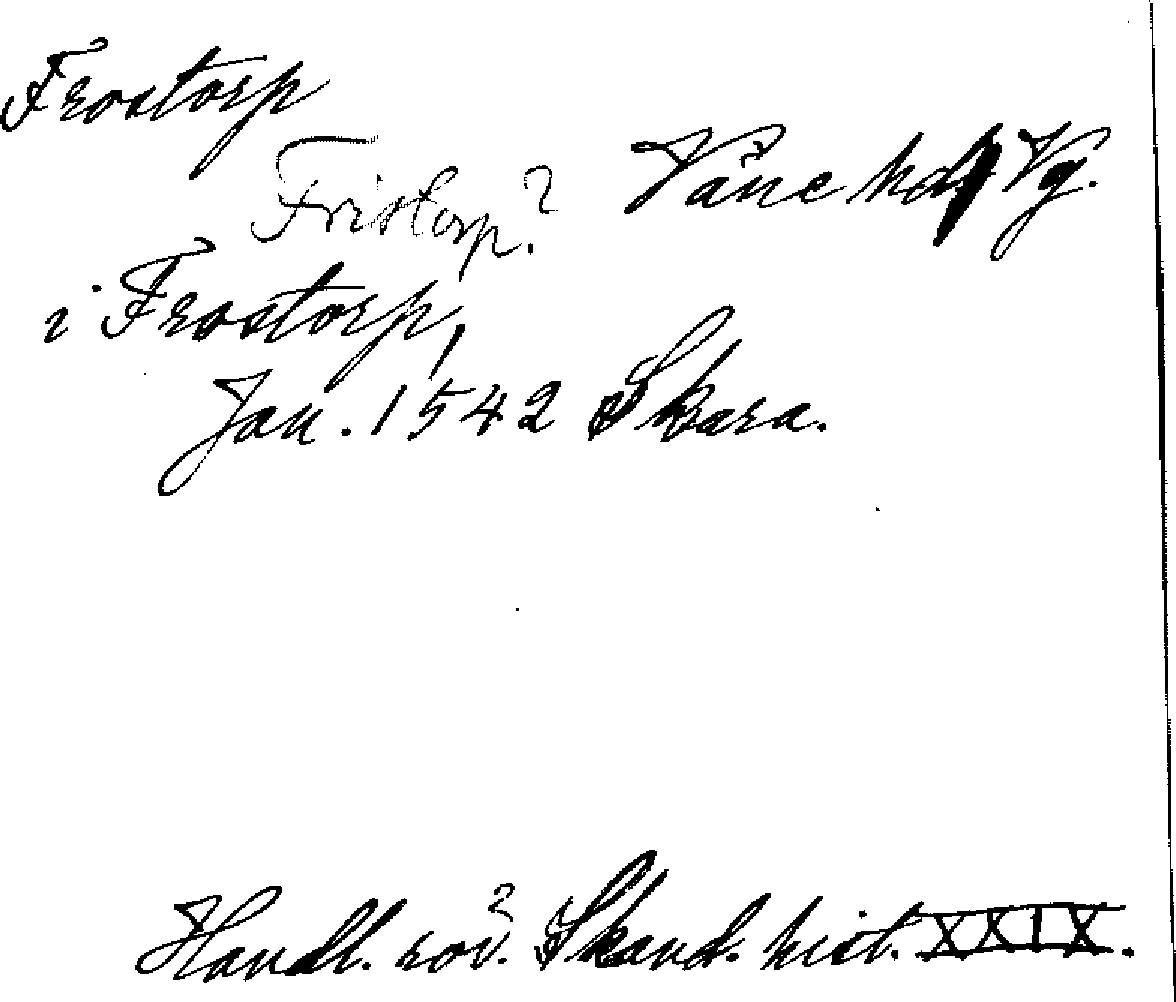 Frostorp
Fristorp? Våne hd Vg.
i Frostorp,
Jan. 1542 Skara.
Handl. rör. Skand. hist. XXIX.